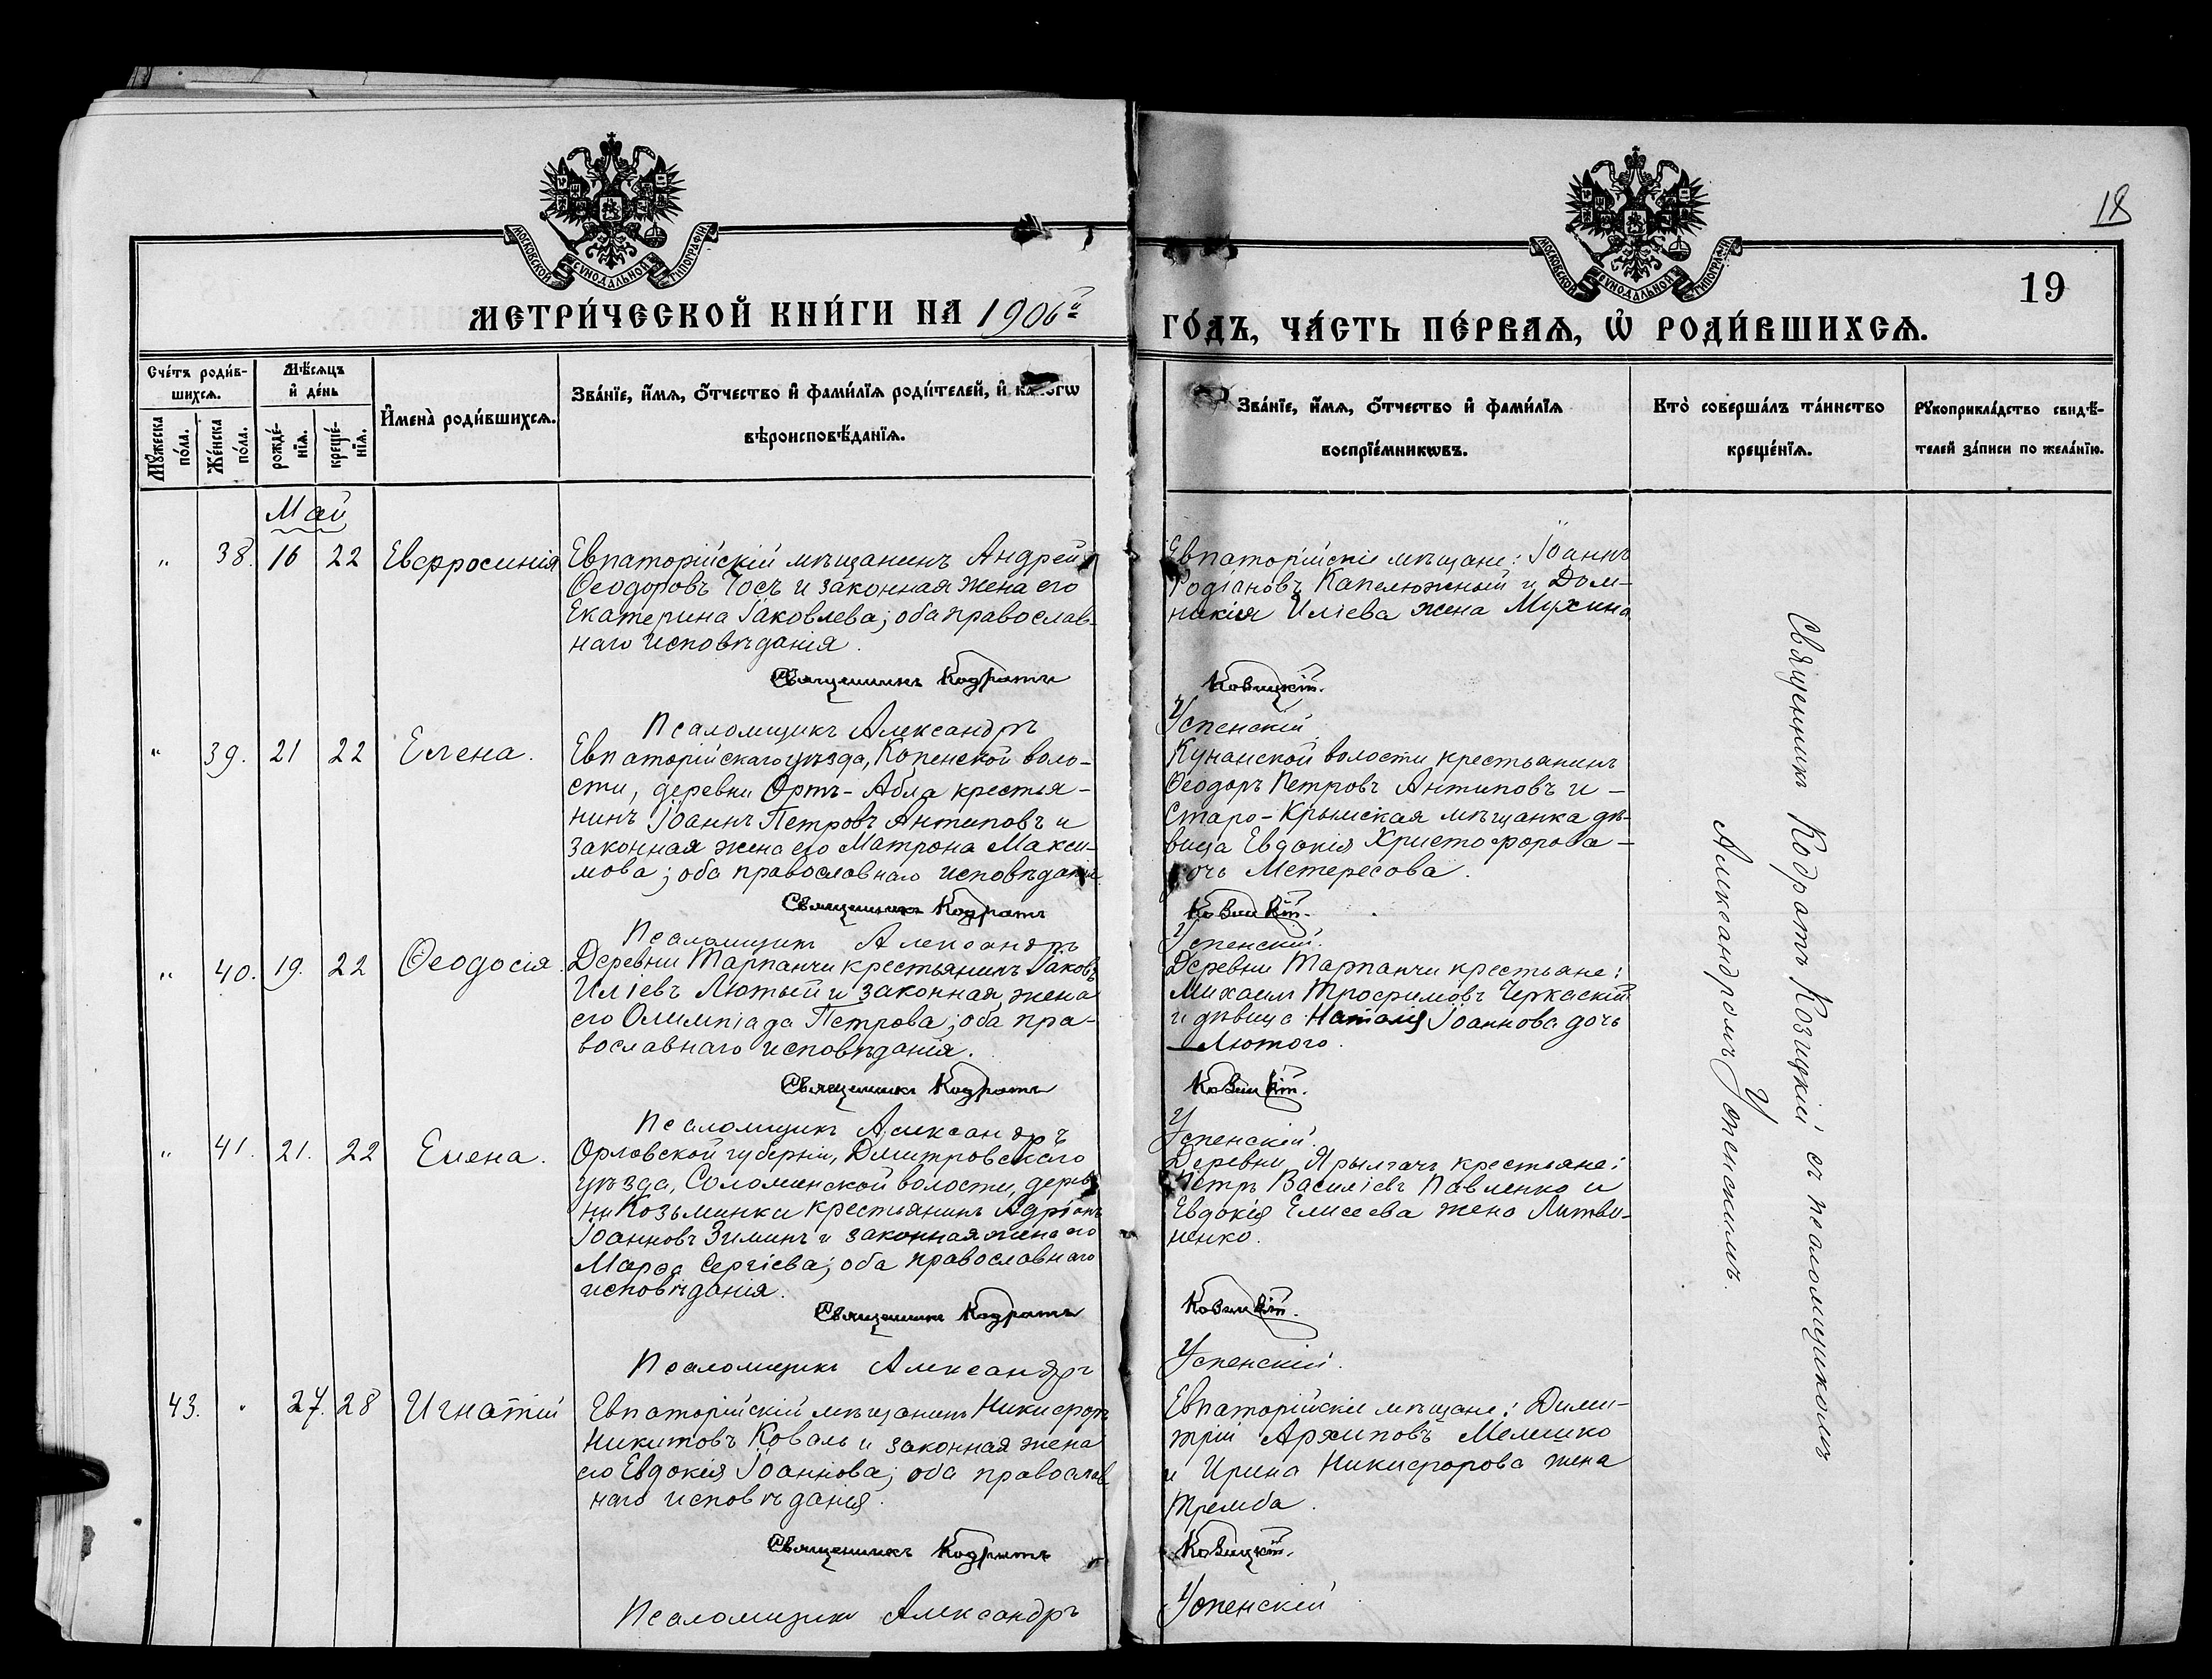 18
19
МОСКОВСКОЙ СѴНОДАЛЬНОЙ ТИПОГРАФІИ
МОСКОВСКОЙ СѴНОДАЛЬНОЙ ТИПОГРАФІИ
МЕТРИ́ЧЕСКОЙ КНИ́ГИ НА 1906й
ГО́ДЪ, ЧА́СТЬ ПЕ́РВАЯ, Ѡ РОДИ́ВШИХСЯ.
Сче́тъ роди́в-
шихся.
Мѣ́сяцъ
и де́нь
Мꙋ́жеска
по́ла.
Же́нска
по́ла.
рожде́-
нїя.
креще́-
нїя.
Имена̀ роди́вшихся.
Зва́нїе, и́мя, ѻ́тчество и фами́лїя роди́телей, и
вѣроисповѣ́данїя.
Зва́нїе, и́мя, ѻ́тчество и фами́лїя
воспрїе́мникѡвъ.
Кто̀ соверша́лъ та́инство
креще́нїя.
Рꙋкоприкла́дство свидѣ́-
телей за́писи по жела́нїю.
Май
„ 38. 16 22 Евфросинія
Евпаторійскій мѣщанинъ Андрей
Ѳеодоровъ Чосъ и законная жена его
Екатерина Іаковлева; оба православ-
наго исповѣданія.
Священникъ Кодратъ
Псаломщикъ Александръ
Евпаторійскіе мѣщане: Іоаннъ
Родіановъ Капелюжный и Дом-
никія Иліева жена Мухина
Козицкій.
Успенскій
„ 39. 21 22 Елена.
Евпаторійскаго уѣзда, Копенской воло-
сти, деревни Ортъ-Абла крестья-
нинъ Іоаннъ Петровъ Антиповъ и
законная жена его Матрона Макси-
мова; оба православнаго исповѣданія.
Священникъ Кодратъ
Псаломщикъ Александръ
Кунанской волости крестьянинъ
Ѳеодоръ Петровъ Антиповъ и -
Старо-Крымская мѣщанка дѣ-
вица Евдокія Христофорова -
дочь Метересова.
Козицкій.
Успенскій.
„ 40. 19. 22 Ѳеодосія.
Деревни Тарпанчи крестьянинъ Іаковъ
Иліевъ Лютый и законная жена
его Олимпіада Петрова; оба пра-
вославнаго исповѣданія.
Священникъ Кодратъ
Псаломщикъ Александръ
Деревни Тарпанчи крестьяне:
Михаилъ Трофимовъ Черкаскій
и дѣвица Наталія Іоаннова дочь
Лютого.
Козицкій.
Успенскій.
„ 41. 21. 22 Елена.
Орловской губерніи, Дмитровскаго
уѣзда, Соломинской волости, дерев-
ни Козьминки крестьянинъ Адріанъ
Іоанновъ Зиминъ и законная жена его
Марѳа Сергіева; оба православнаго
исповѣданія.
Священникъ Кодратъ
Псаломщикъ Александръ
Деревни Ярылгачъ крестьяне:
Петръ Василіевъ Павленко и
Евдокія Елисеева жена Литви-
ненко.
Козицкій.
Успенскій.
43. „ 27. 28 Игнатій
Евпаторійскій мѣщанинъ Никифоръ
Никитовъ Коваль и законная жена
его Евдокія Іоаннова; оба православ
наго исповѣданія.
Священникъ Кодратъ
Псаломщикъ Александръ
Евпаторійскіе мѣщане: Дими-
трій Архиповъ Мелешко
и Ирина Никифорова жена
Тремба.
Козицкій.
Успенскій
Священникъ Кодратъ Козицкій съ псаломщикомъ
Александромъ Успенскимъ.